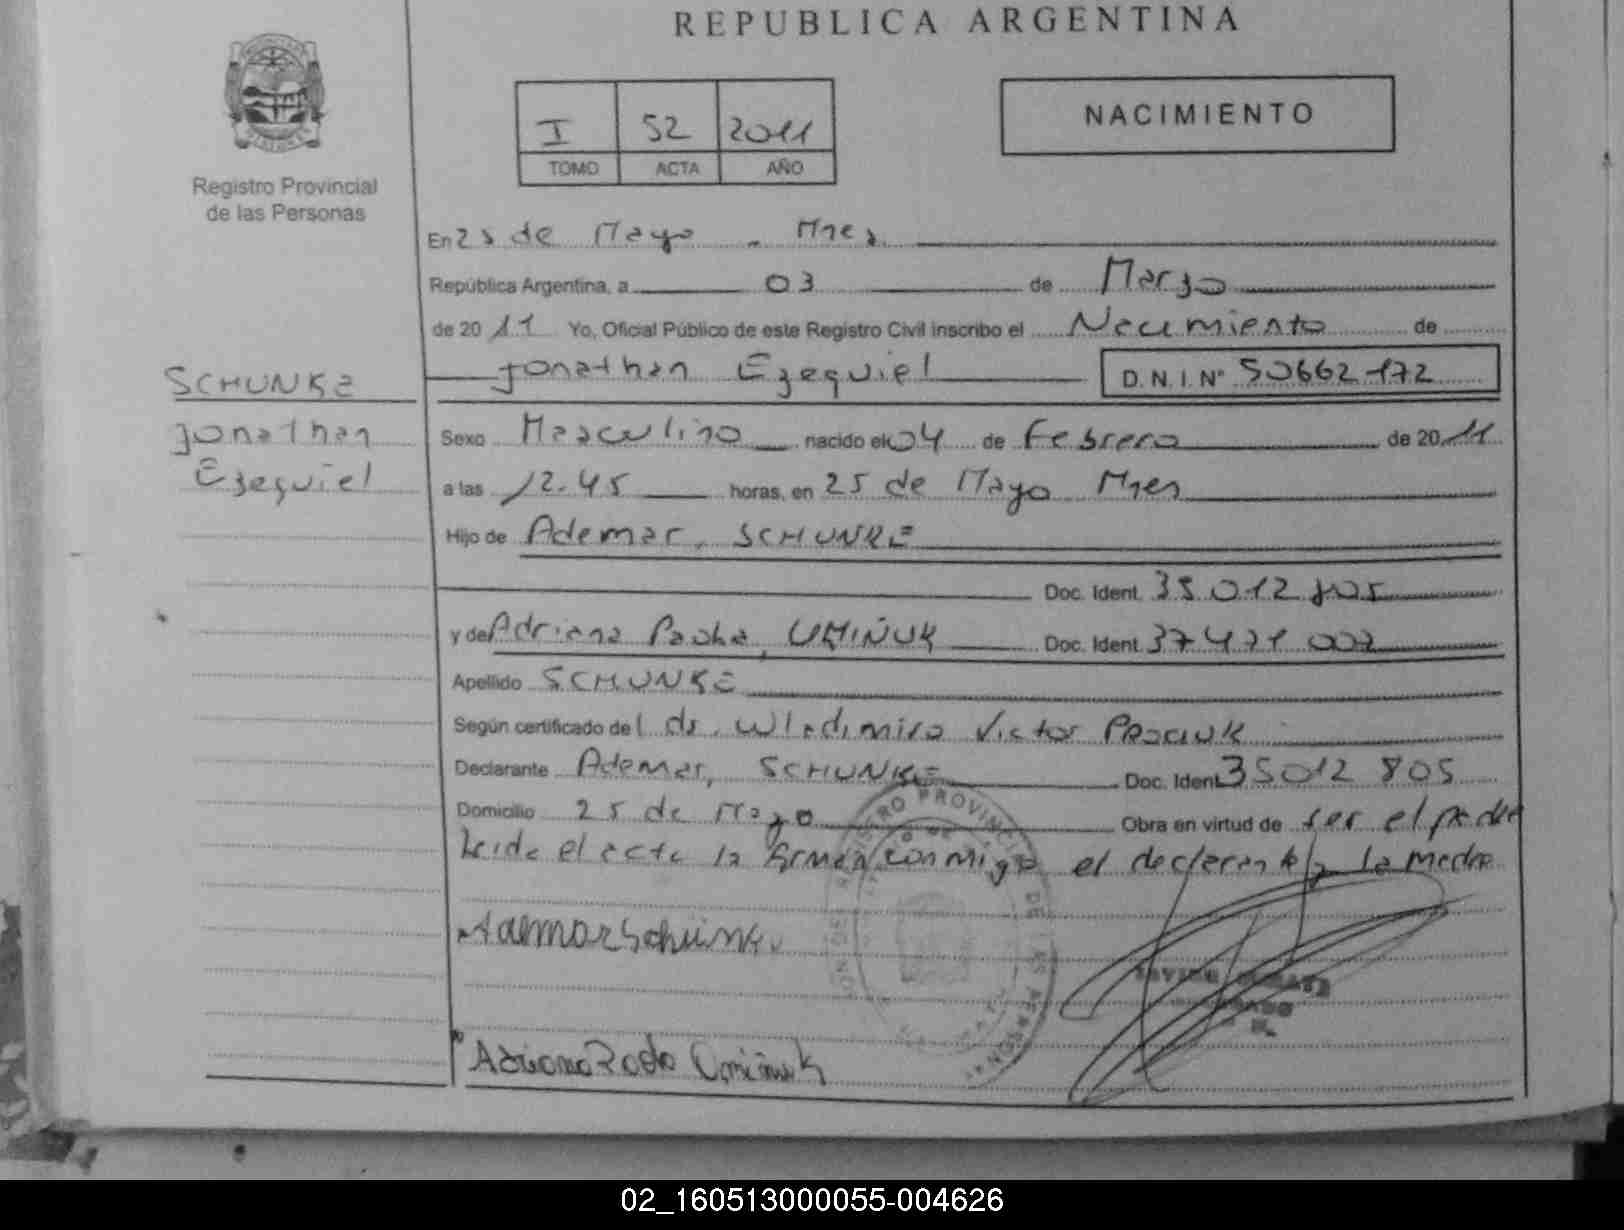 REPUBLICA ARGENTINA
I 52 2011
TOMO ACTA AÑO
NACIMIENTO
Registro Provincial
de las Personas
En 25 de Mayo - Mnes
República Argentina, a 03 de Marzo
de 2011 Yo, Oficial Público de este Registro Civil inscribo el Nacimiento de
Jonathan Ezequiel D.N.I. Nº 50662172
SCHUNKE
Jonathan
Ezequiel
Sexo Masculino nacido el 04 de Febrero de 2011
a las 12.45 horas, en 25 de Mayo Mnes
Hijo de Ademar, SCHUNKE
Doc. Ident. 35.012.805
y de Adriana Paola, UMIÑUK Doc. Ident. 37471002
Apellido SCHUNKE
Según certificado del dr. Wladimiro Victor PROCIUK
Declarante Ademar, SCHUNKE Doc. Ident. 35012805
Domicilio 25 de Mayo Obra en virtud de ser el padre
Leida el acta la firman conmigo el declarante y la madre
Ademar Schünke
REGISTRO PROVINCIAL DE LAS PERSONAS
Adriana Paola Umiñuk
02_160513000055-004626